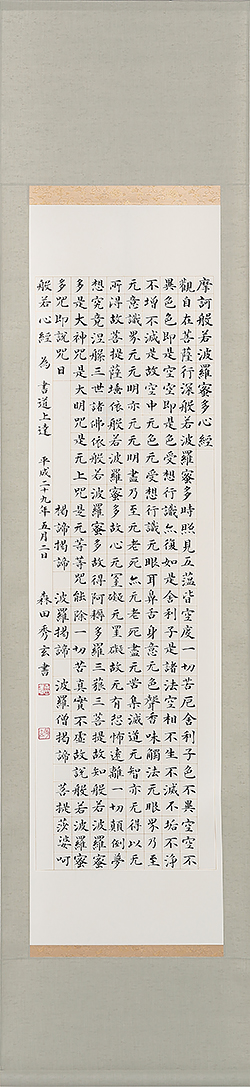 摩訶般若波羅蜜多心經
觀自在菩薩行深般若波羅蜜多時照見五蘊皆空度一切苦厄舍利子色不異空空不
異色色即是空空即是色受想行識亦復如是舍利子是諸法空相不生不滅不垢不淨
不增不減是故空中无色无受想行識无眼耳鼻舌身意无色聲香味觸法无眼界乃至
无意識界无无明亦无无明盡乃至无老死亦无老死盡无苦集滅道无智亦无得以无
所得故菩提薩埵依般若波羅蜜多故心无罣礙无罣礙故无有恐怖遠離一切顛倒夢
想究竟涅槃三世諸佛依般若波羅蜜多故得阿耨多羅三藐三菩提故知般若波羅蜜
多是大神咒是大明咒是无上咒是无等等咒能除一切苦真實不虛故說般若波羅蜜
多咒即說咒曰 揭諦揭諦 波羅揭諦 波羅僧揭諦 菩提莎婆呵
般若心經 為 書道上達 平成二十九年五月二日 森田秀玄書